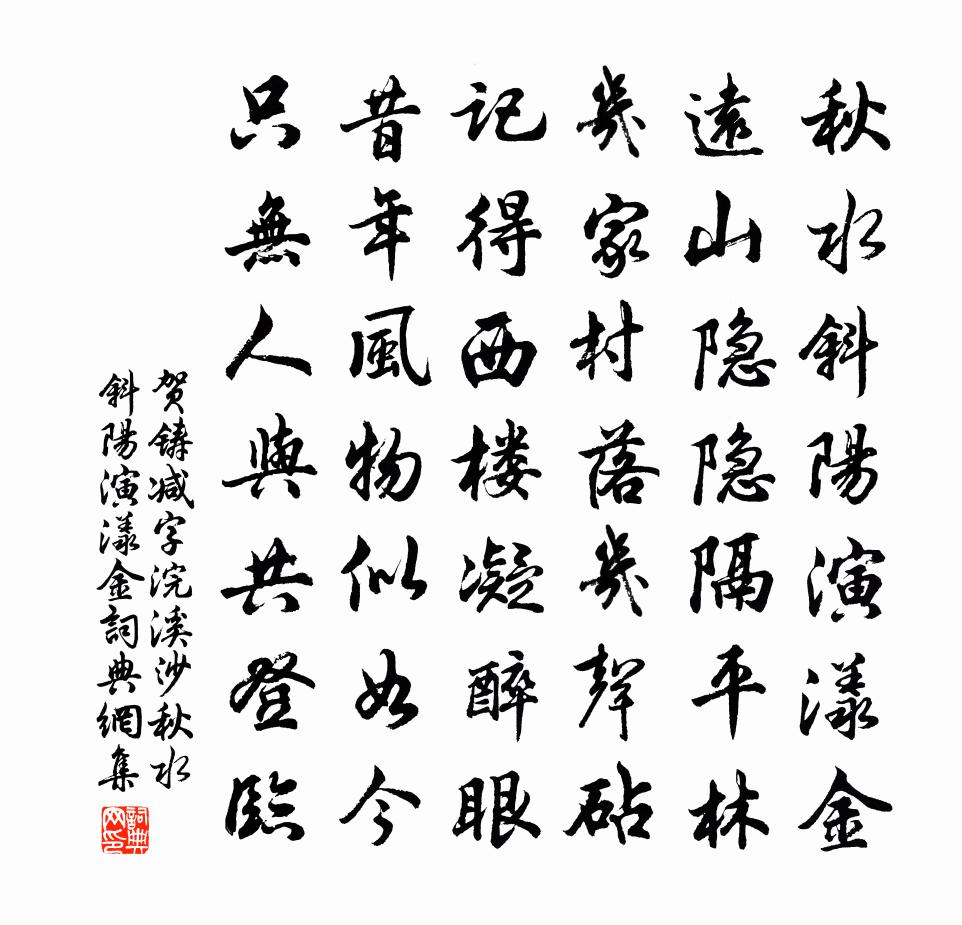 秋水斜陽演漾金
遠山隐隐隔平林
幾家村落幾聲砧
記得西楼凝醉眼
昔年風物似如今
只無人與共登臨
贺鑄减字浣溪沙秋水
斜陽演漾金詞典網集
詞典网印